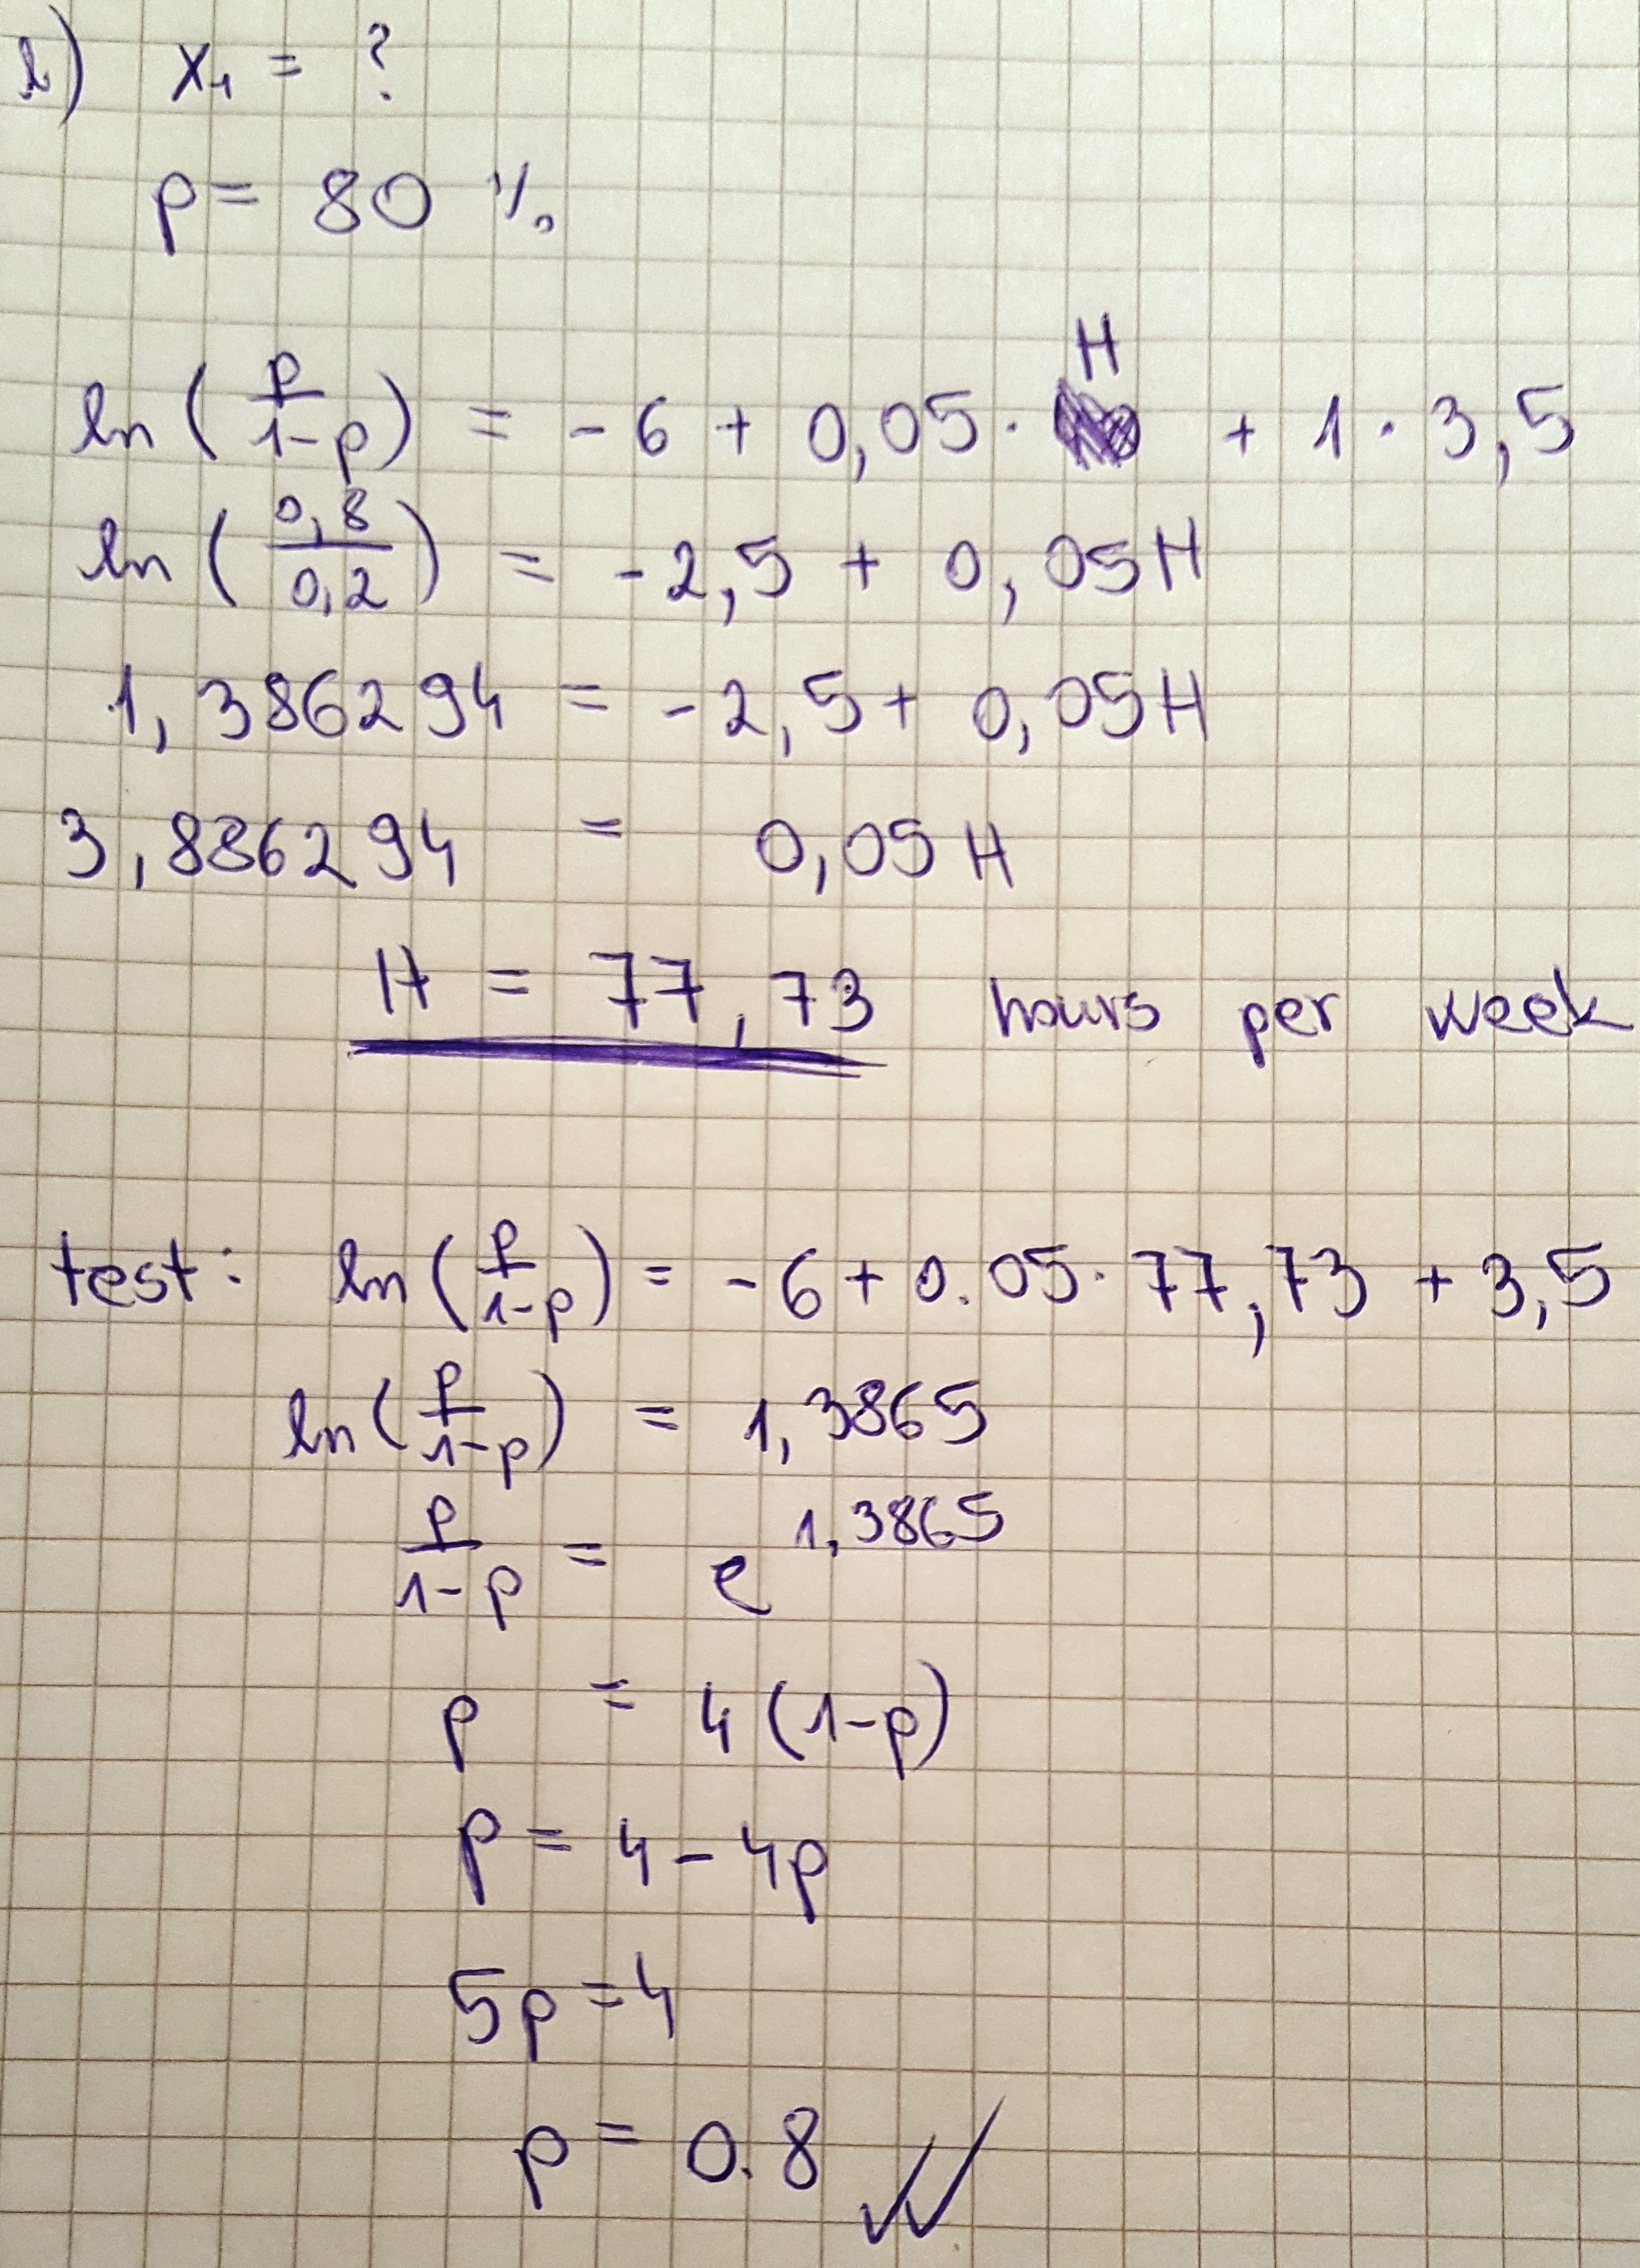 b) X₁ = ?
p = 80 %
ln (p/1-p) = - 6 + 0,05 · H + 1 · 3,5
ln (0,8/0,2) = -2,5 + 0,05H
1,386294 = -2,5 + 0,05H
3,886294 = 0,05H
H = 77,73 hours per week
test: ln (p/1-p) = - 6 + 0.05 · 77,73 + 3,5
ln (p/1-p) = 1,3865
p/1-p = e^1,3865
p = 4 (1-p)
p = 4 - 4p
5p = 4
p = 0.8